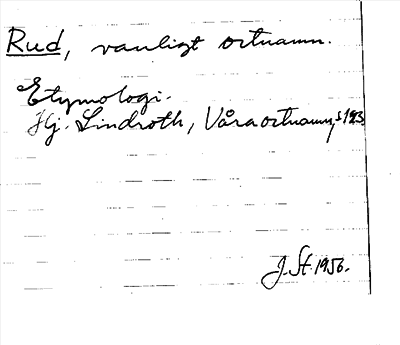 Rud, vanligt ortnamn.
Etymologi.
Hj. Lindroth, Våra ortnamn, s 193
J. St. 1956.